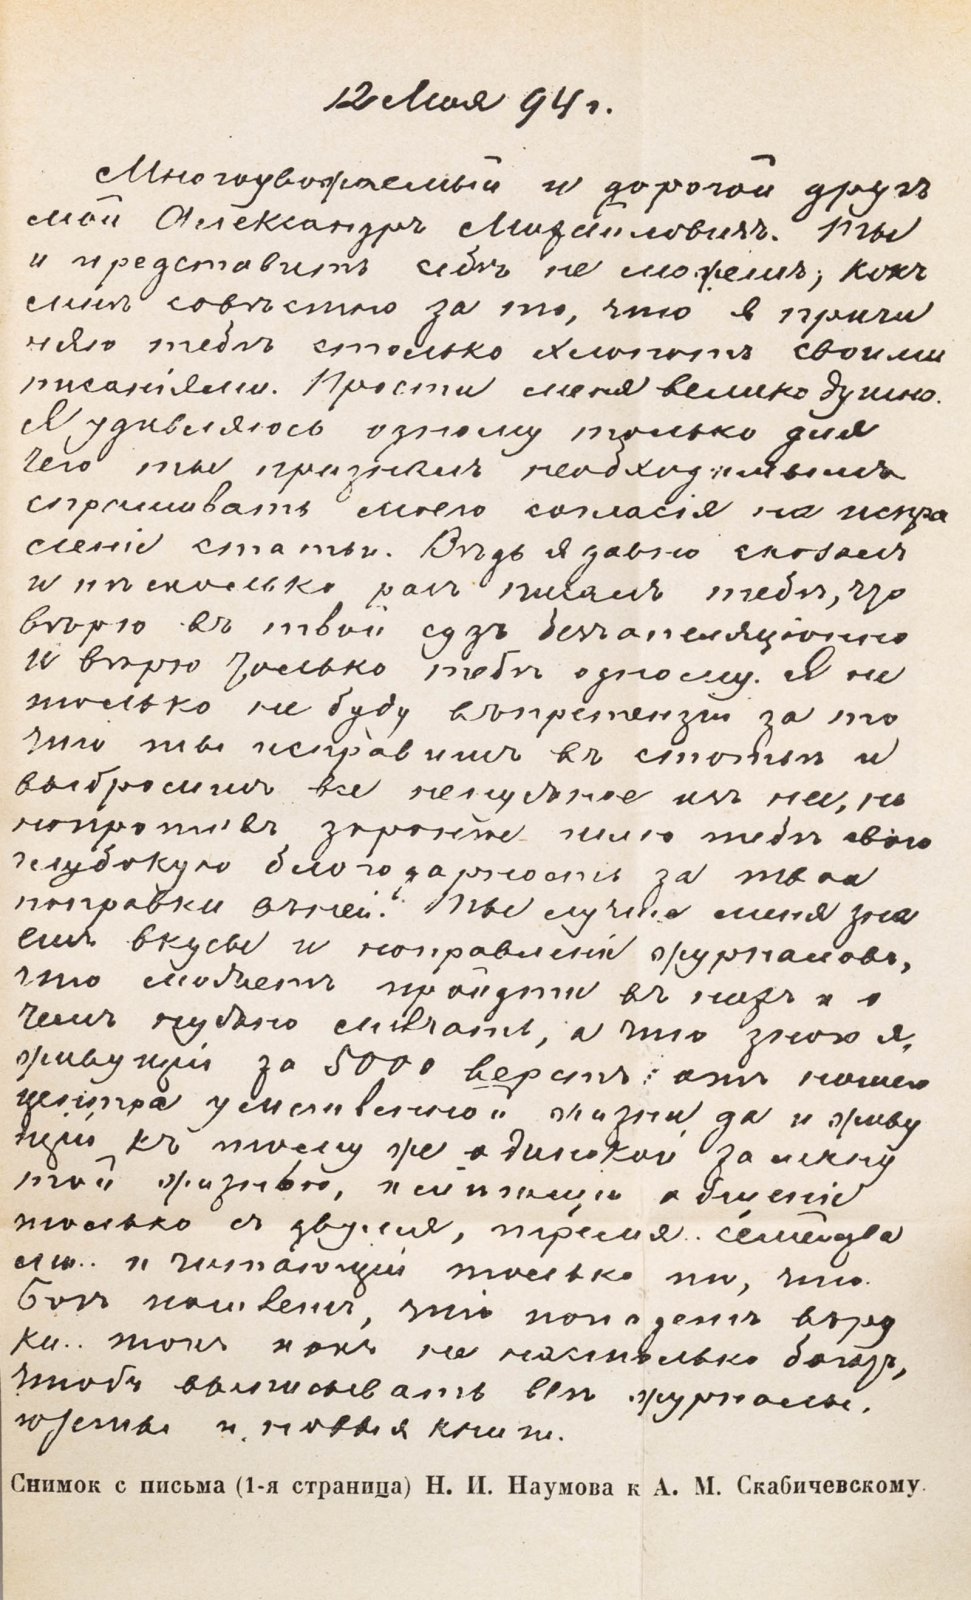 12 Мая 94 г.
Многоуважаемый и дорогой другъ
мой Александръ Михайловичъ. Ты
и представить себѣ не можешь, какъ
мнѣ совѣстно за то, что я причи
няю тебѣ столько хлопотъ своими
писаніями. Прости меня великодушно.
Я удивляюсь одному только для
чего ты призналъ необходимымъ
спрашивать моего согласія на испра
леніе статьи. Вѣдь я давно сказалъ
и нѣсколько разъ писалъ тебѣ, что
вѣрю въ твой судъ безапеляціонно
И вѣрю только тебѣ одному. Я не
только не буду въ претензіи за то
что ты исправишь въ статьѣ и
выбросишь все ненужное изъ нее, но
напротивъ заранѣе шлю тебѣ свою
глубокую благодарность за твои
поправки въ ней. Ты лучше меня зна
ешь вкусы и направленія журналовъ,
что можетъ пройдти въ нихъ и о
чемъ нужно смолчать, а что знаю я,
живущій за 5000 верстъ отъ нашего
центра умственной жизни да и живу
щій къ тому же одинокой замкну
той жизнью, имѣющій общеніе
только съ двумя, тремя.. семейства
ми.. и читающій только то, что
Богъ пошлетъ, что попадетъ въ ру
ки.. такъ какъ не настолько богатъ,
чтобъ выписывать всѣ журналы,
газеты и новыя книги.
Снимок с письма (1-я страница) Н. И. Наумова к А. М. Скабичевскому.